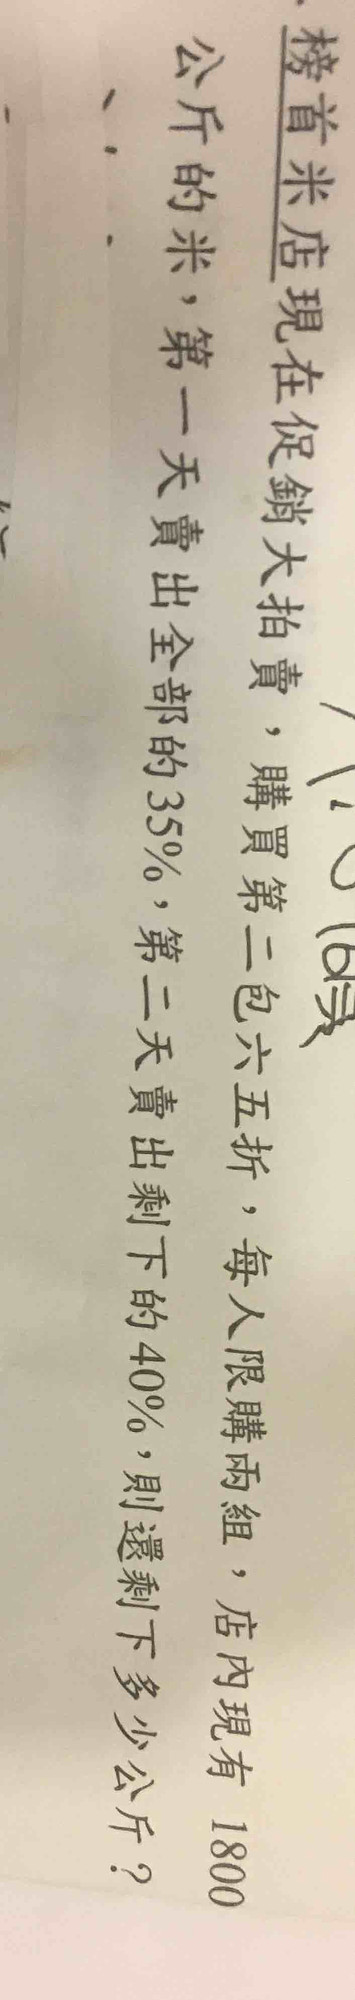 榜首米店現在促銷大拍賣，購買第二包六五折，每人限購兩組，店內現有 1800
公斤的米，第一天賣出全部的35%，第二天賣出剩下的40%，則還剩下多少公斤？